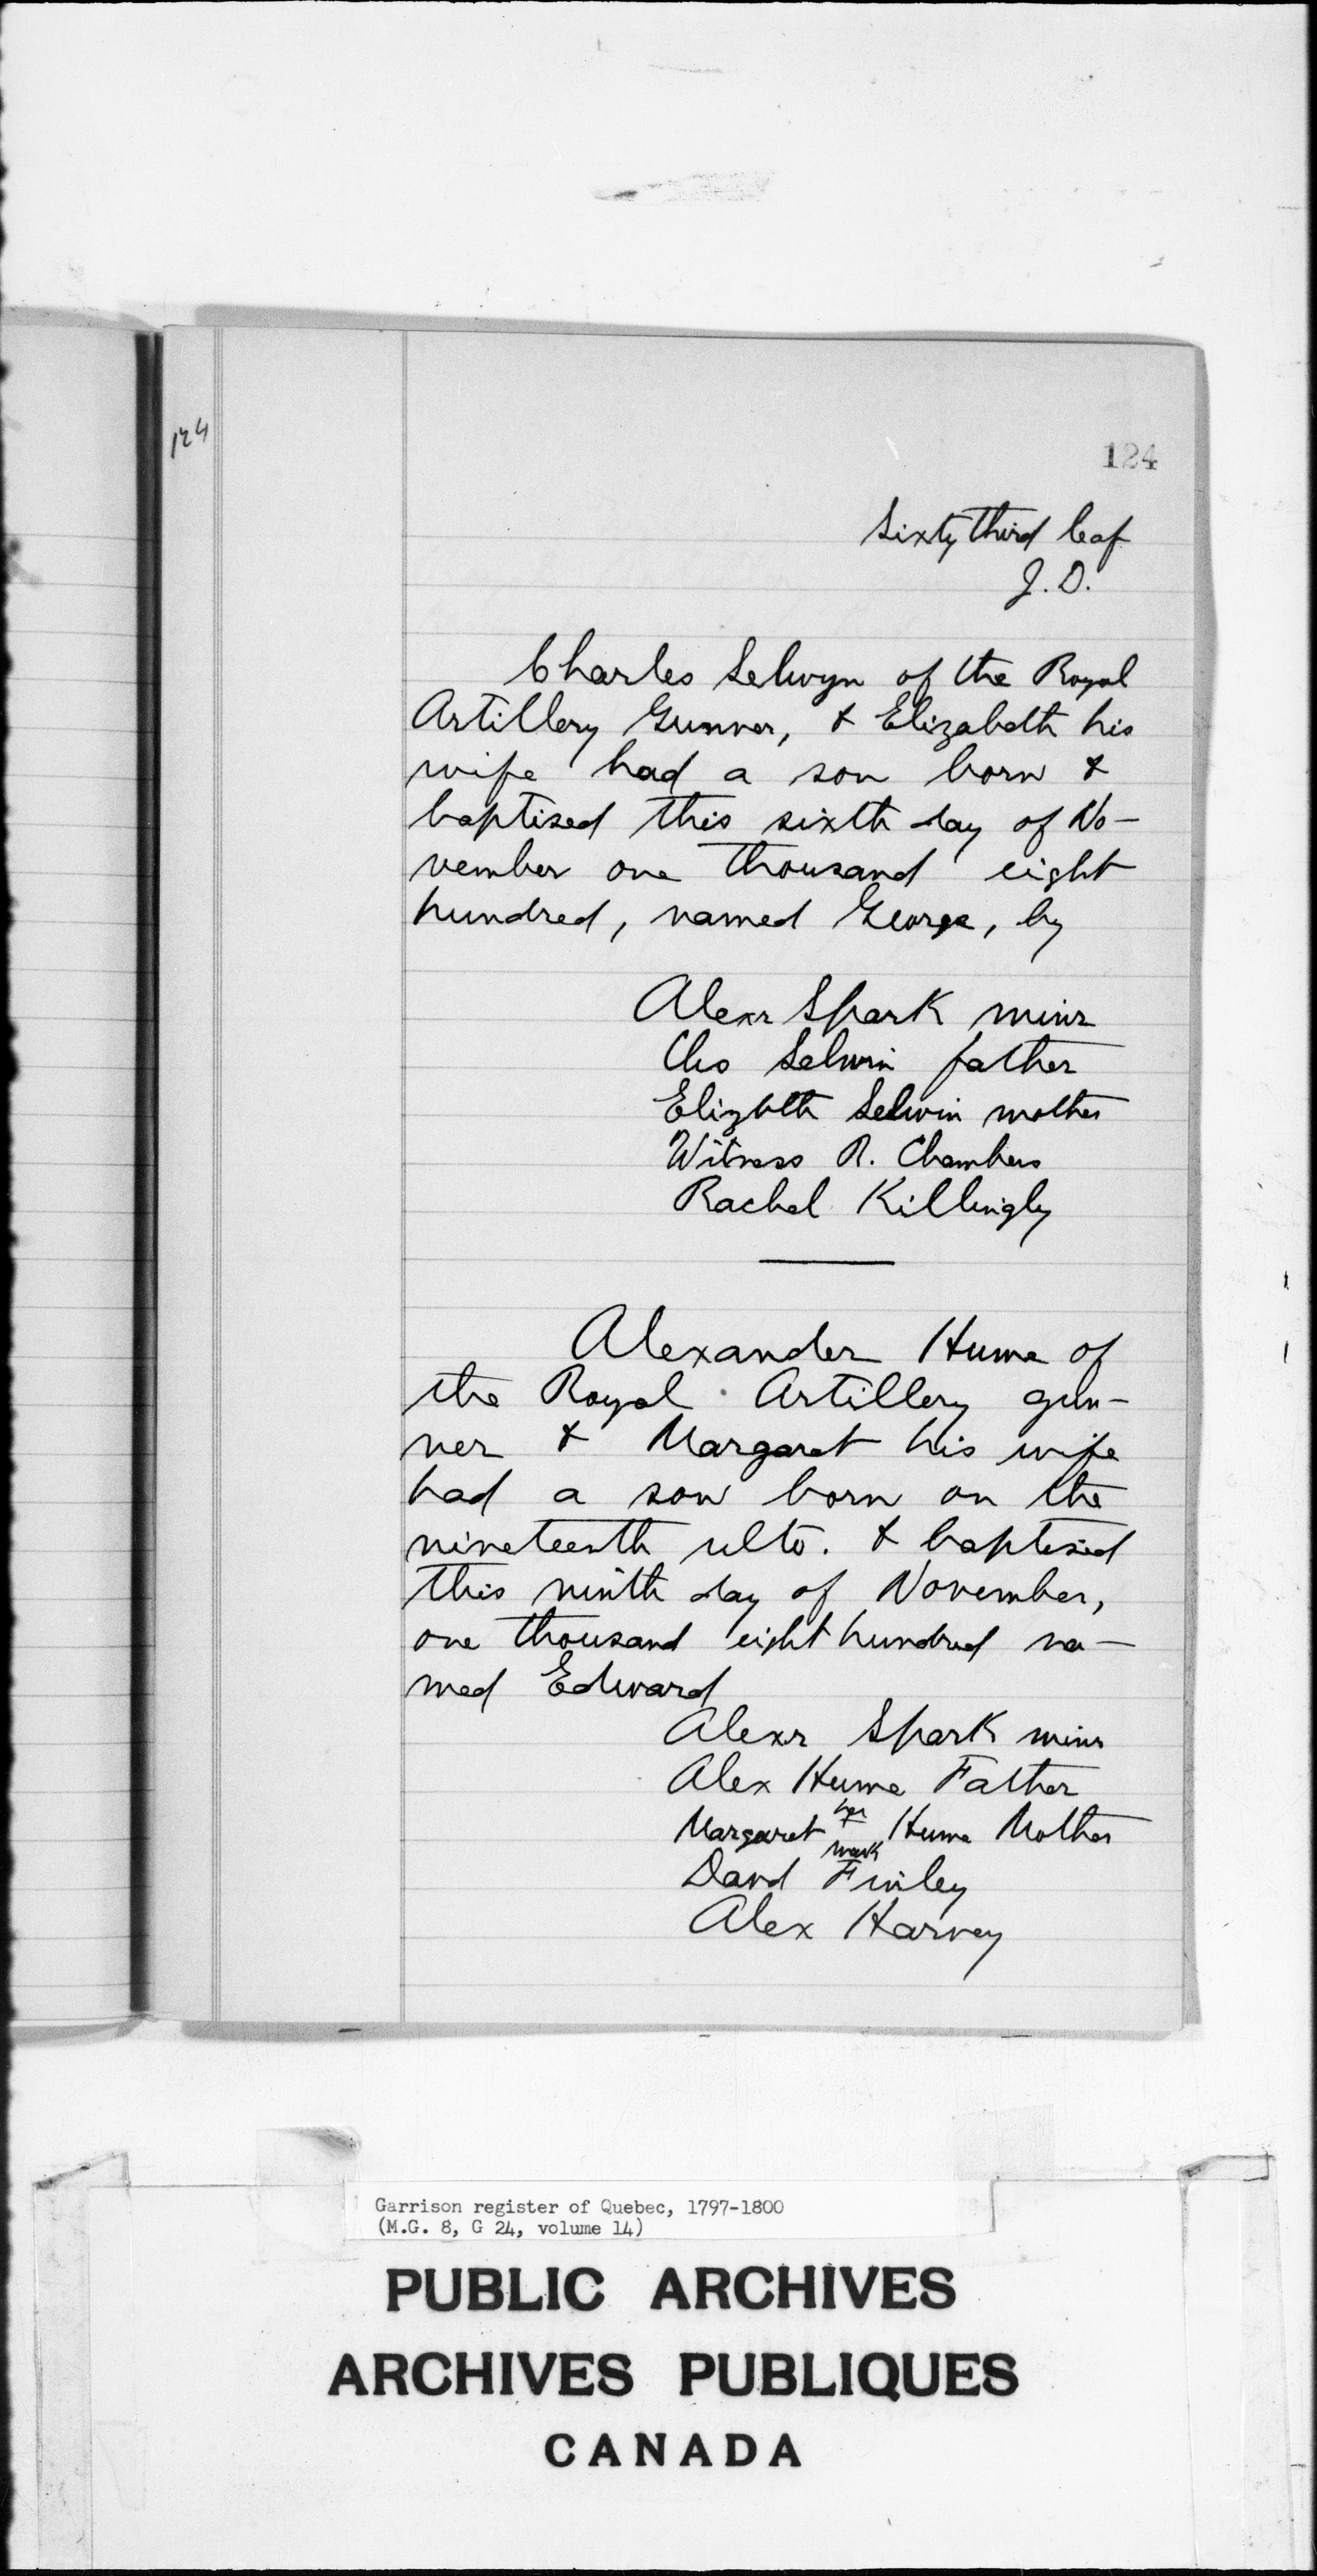 124
124
Sixty third leaf
J. D.
Charles Selwyn of the Royal
Artillery Gunner, & Elizabeth his
wife had a son born &
baptized this sixth day of No-
vember one thousand eight
hundred, named George, by
Alexr Spark minr
Chs Selwin father
Elizbth Selwin mother
Witness R. Chambers
Rachel Killingly
Alexander Hume of
the Royal Artillery gun-
ner & Margaret his wife
had a son born on the
nineteenth ulto. & baptized
this ninth day of November,
one thousand eight hundred na-
med Edward
Alexr Spark minr
Alex Hume Father
her
Margaret x Hume Mother
mark
David Finley
Alex Harvey
Garrison register of Quebec, 1797-1800
(M.G. 8, G 24, volume 14)
PUBLIC ARCHIVES
ARCHIVES PUBLIQUES
CANADA